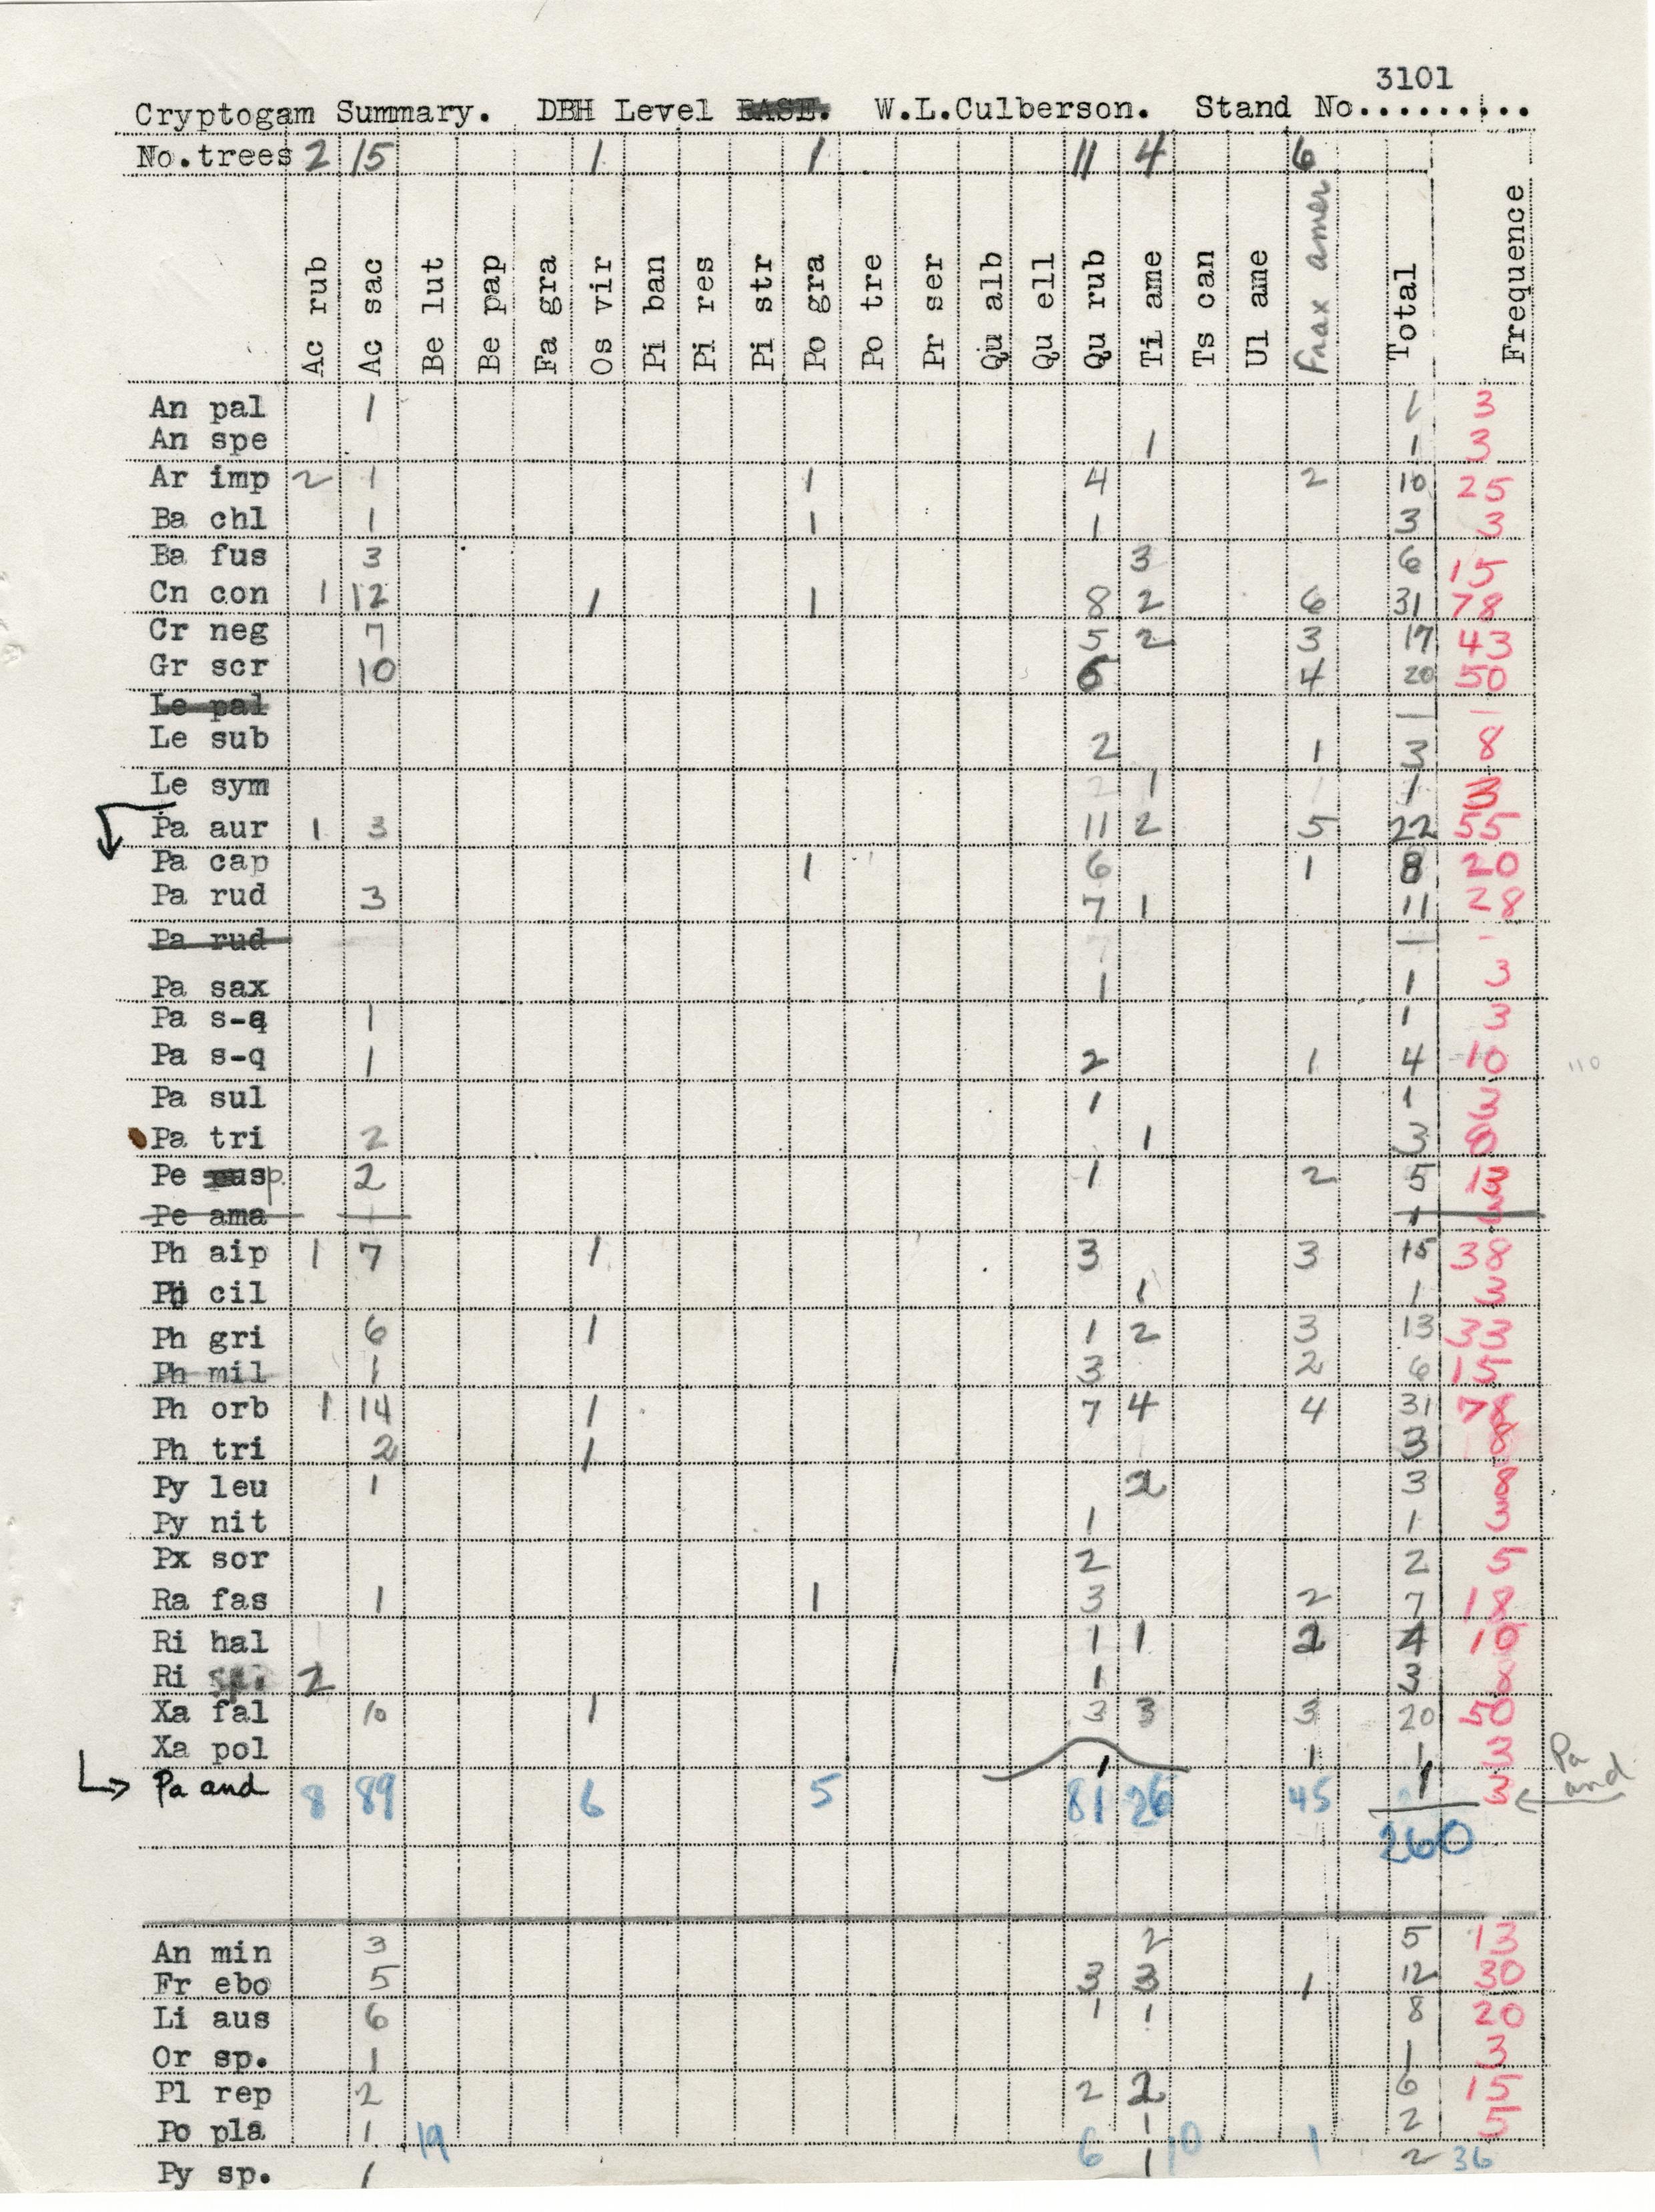 3101
Cryptogam Summary. DBH Level BASE. W.L.Culberson. Stand No.........
No.trees 2 15 1 1 11 4 6
Ac rub Ac sac Be lut Be pap Fa gra Os vir Pi ban Pi res Pi str Po gra Po tre Pr ser Qu alb Qu ell Qu rub Ti ame Ts can Ul ame Frax amer Total Frequence
An pal 1 1 3
An spe 1 1 3
Ar imp 2 1 1 4 2 10 25
Ba chl 1 1 1 3 3
Ba fus 3 3 6 15
Cn con 1 12 1 1 8 2 6 31 78
Cr neg 7 5 2 3 17 43
Gr scr 10 6 4 20 50
Le pal — —
Le sub 2 1 3 8
Le sym 1 1 3
Pa aur 1 3 11 2 5 22 55
Pa cap 1 6 1 8 20
Pa rud 3 7 1 11 28
Pa rud — -
Pa sax 1 1 3
Pa s-a 1 1 3
Pa s-q 1 2 1 4 10 110
Pa sul 1 1 3
Pa tri 2 1 3 8
Pe p. 2 1 2 5 13
Pe ama 1 1 3
Ph aip 1 7 1 3 3 15 38
Ph cil 1 1 3
Ph gri 6 1 1 2 3 13 33
Ph mil 1 3 2 6 15
Ph orb 1 14 1 7 4 4 31 78
Ph tri 2 1 3 8
Py leu 1 2 3 8
Py nit 1 1 3
Px sor 2 2 5
Ra fas 1 1 3 2 7 18
Ri hal 1 1 2 4 10
Ri sp. 2 1 3 8
Xa fal 10 1 3 3 3 20 50
Xa pol 1 1 3 Pa and
Pa and 1 1 3
8 89 6 5 81 26 45
260
An min 3 2 5 13
Fr ebo 5 3 3 1 12 30
Li aus 6 1 1 8 20
Or sp. 1 1 3
Pl rep 2 2 2 6 15
Po pla 1 1 2 5
19 6 10 1 36
Py sp. 1 1 2